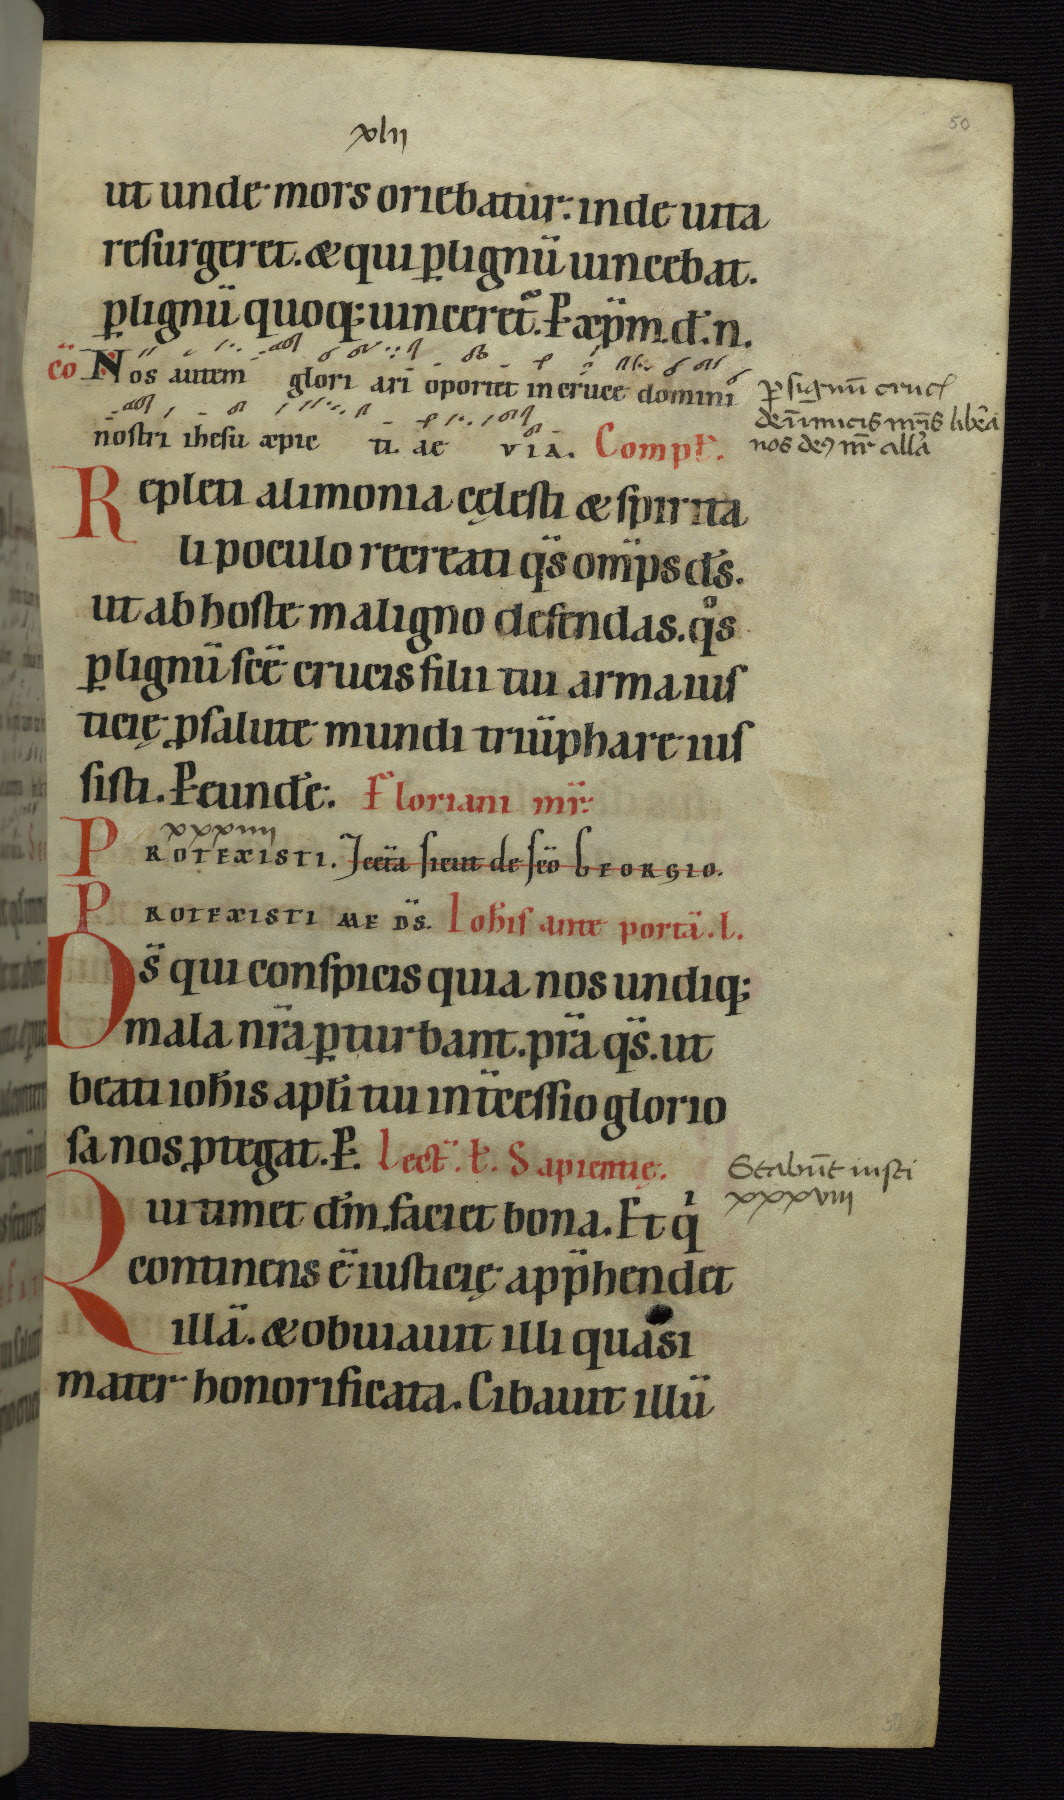 xlii
50
ut unde mors oriebatur: inde uita
resurgeret. & qui p̱ lignū uincebat.
p̱ lignū quoq; uinceret᷑. P xp̄m. d̄. n.
cō Nos autem glori ari oportet in cruce domini
nostri ihesu xpie ti. ae via. Compl̄.
p̱ signū crucis
de inimicis nr̄is libēa
nos de9 nr̄ allā
Repleti alimonia cęlesti & spirita
li poculo recreati q̄s omp̄s d̄s.
ut ab hoste maligno defendas. q°s
p̱ lignū sc̄e crucis filii tui arma ius
ticię p salute mundi triūphare ius
sisti. P eund̄e. Floriani mr̄.
xxxiiii
PROTEXISTI. Icēta sicut de sc̄o GEORGIO.
PROTEXISTI ME D̄S. Ioh̄is ante portā. l.
D̄s qui conspicis quia nos undiq;
mala nr̄a p̱turbant. pr̄a q̄s. ut
beati ioh̄is apl̄i tui int̄cessio glorio
sa nos p̱tegat. P. Lect̄. l̄. Sapientię.
Stabūt iusti
xxxviii
Qui timet d̄m faciet bona. Et qⁱ
continens ē iusticię app̄hendet
illā. & obuiauit illi quasi
mater honorificata. Cibauit illū
50